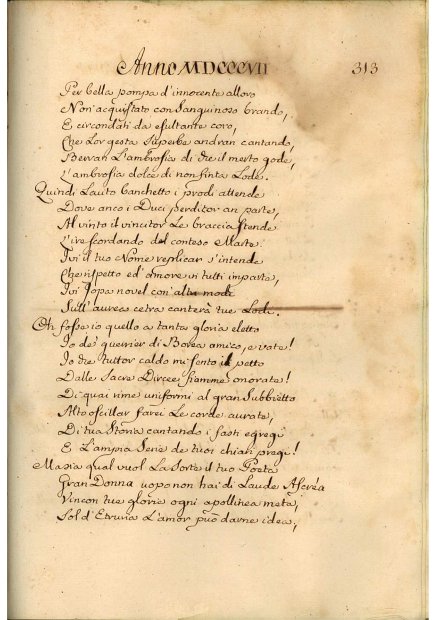 Anno MDCCCVII 313
Per bella pompa d'innocente alloro
Non' acquistato con Sanguinoso brando,
E circondati da esultante coro,
Che Lor gesta Superbe andran cantando,
Bevran L'ambrosia di che il merto gode,
L'ambrosia dolce di non finta Lode.
Quindi Lauto banchetto i prodi attende
Dove anco i Duci perditor an parte,
Al vinto il vincitor Le braccia stende
L'ire scordando del conteso Marte.
Ivi il tuo Nome replicar s'intende
Che rispetto ed amore in tutti imparte,
Ivi Jopa novel con' altu modi
Sull' aurea cetra canterà tue Lodi.
Oh foss'io quello a tanta gloria eletto
Io de' guerrier di Borea amico, e vate!
Io che tuttor caldo mi sento il petto
Dalle Sacre Dircee fiamme onorate!
Di quai rime uniformi al gran Subbietto
Alto oscillar farei Le corde aurate,
Di tua Storia cantando i fasti egregi
E L'ampia Serie de tuoi chiari pregi!
Ma sia qual vuol La Sorte il tuo Poeta
Gran Donna uopo non hai di Laude Ascréa
Vincon tue glorie ogni apollinea meta,
Sol d'Etruria L'amor può darne idea,